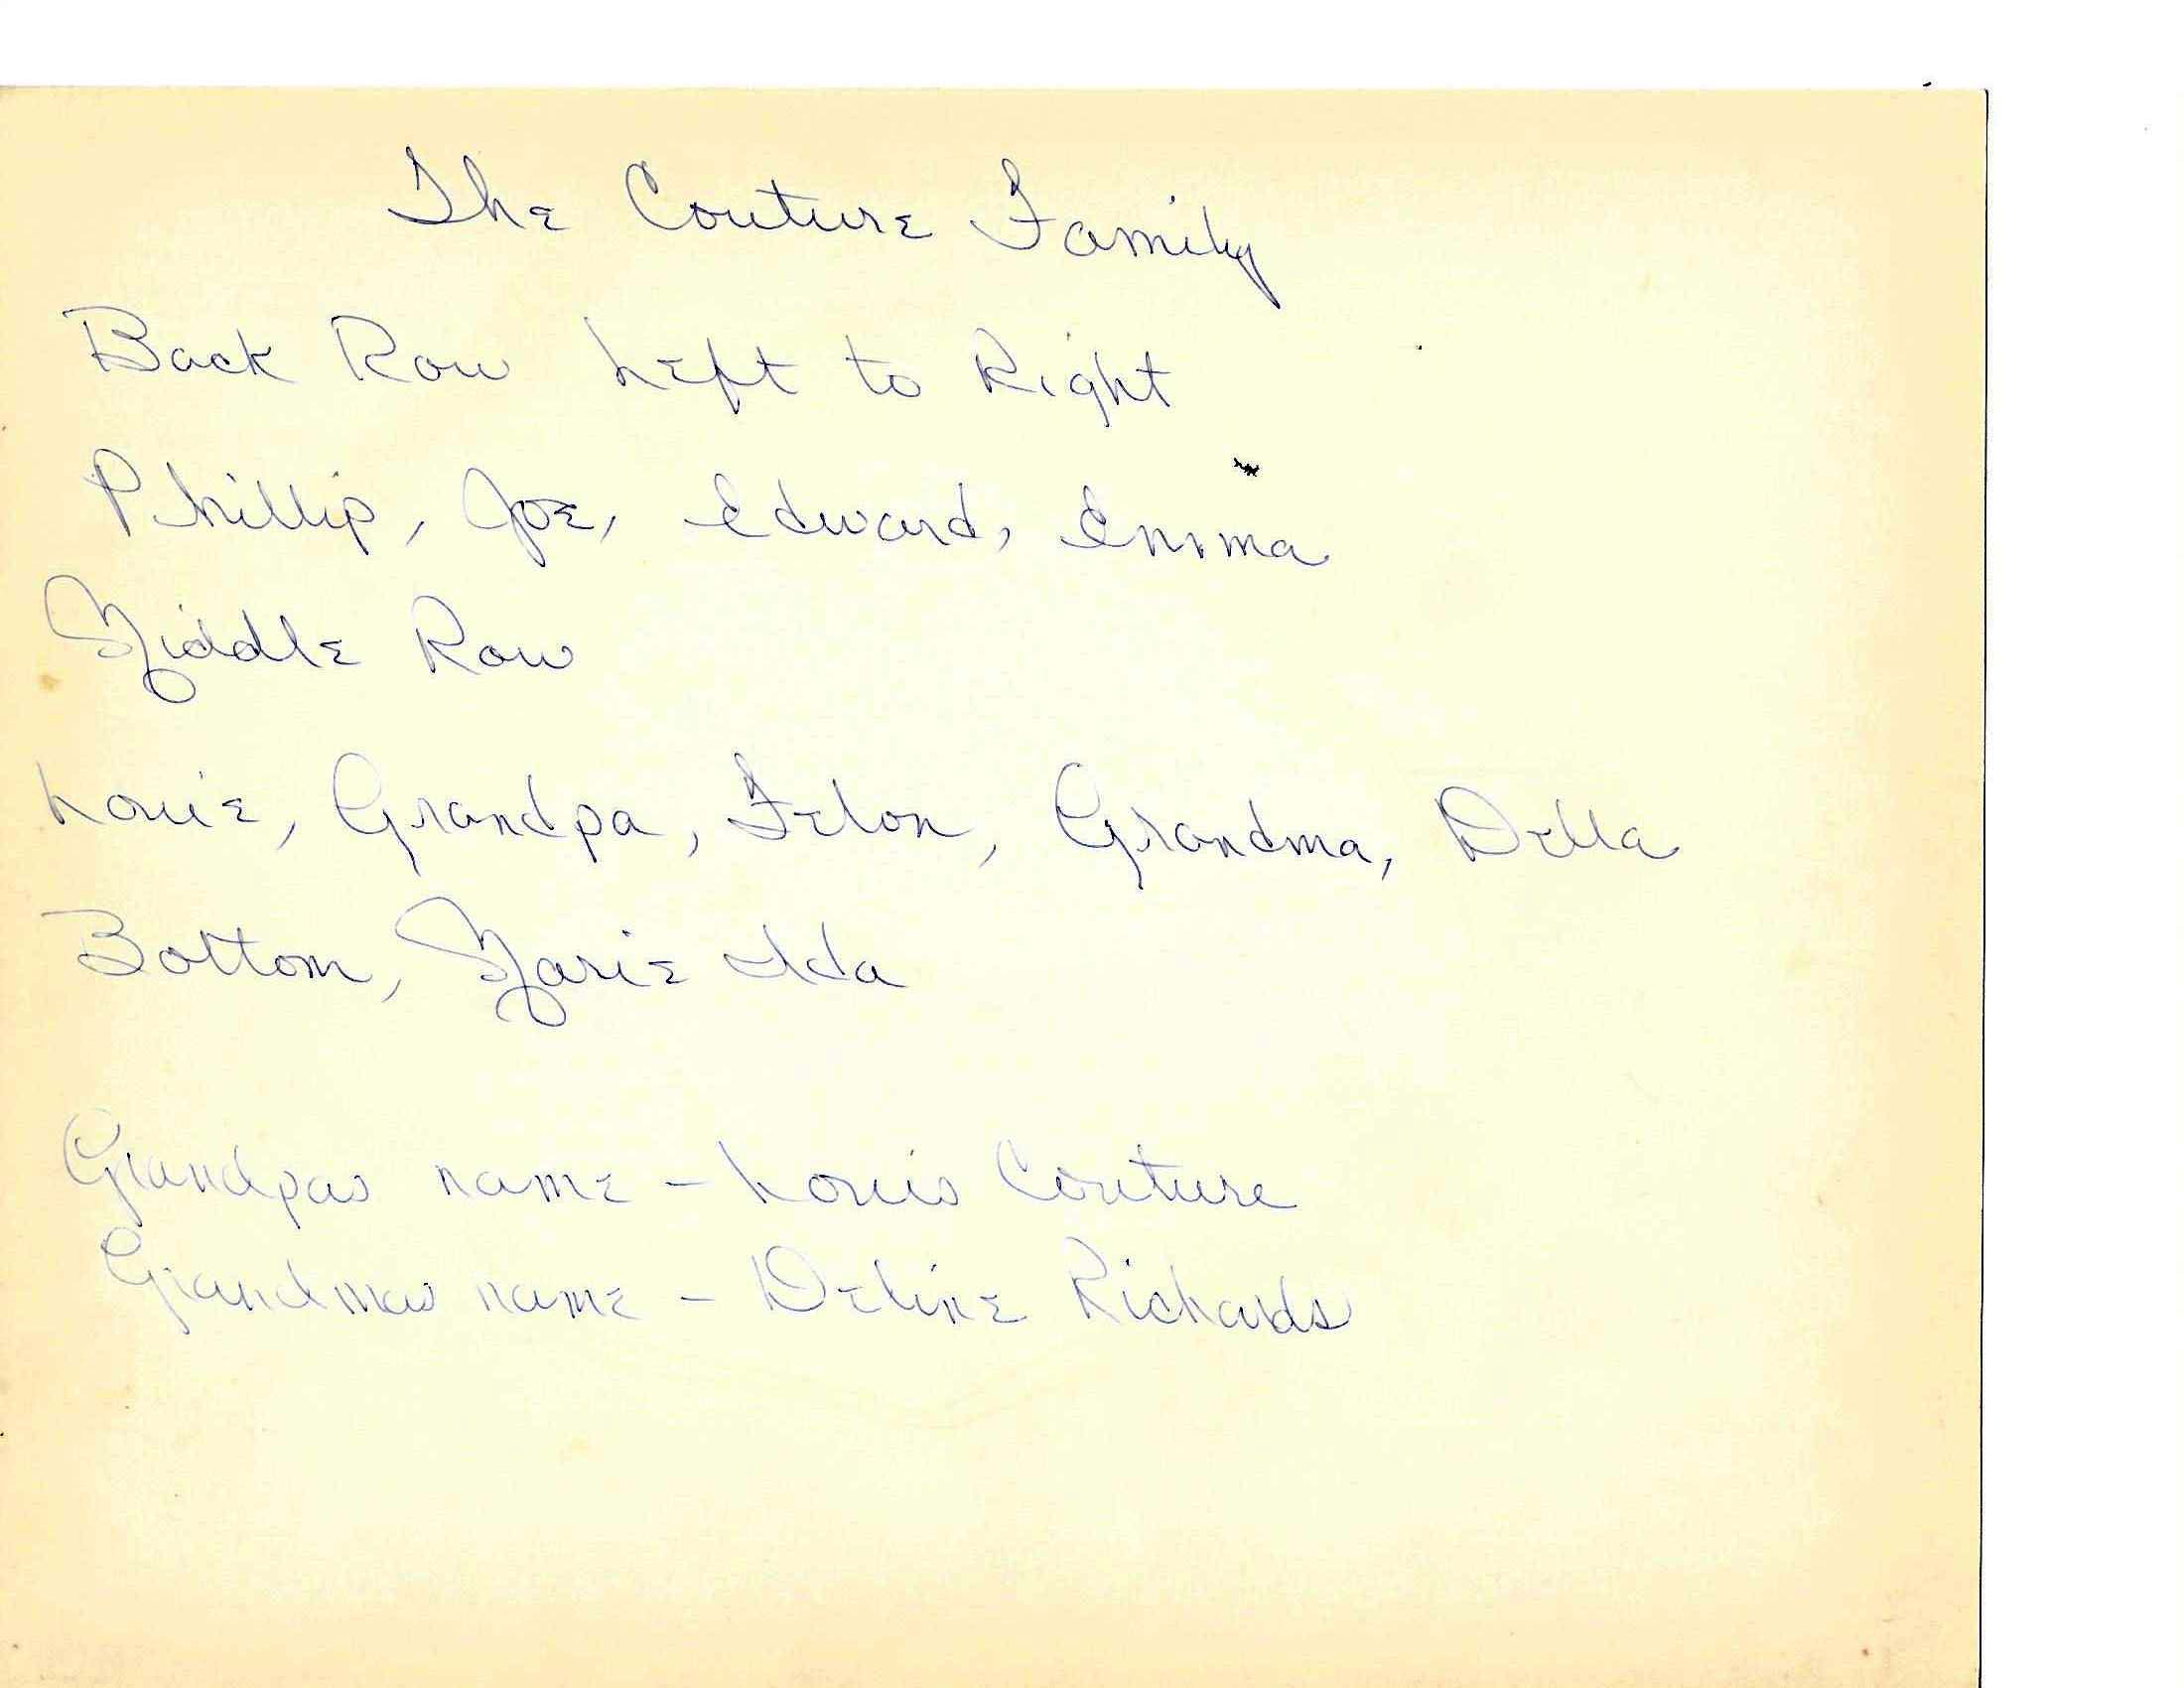 The Couture Family
Back Row Left to Right
Phillip, Joe, Edward, Emma
Middle Row
Louie, Grandpa, Felon, Grandma, Della
Bottom, Marie Ida
Grandpas name - Louis Couture
Grandmas name - Deline Richards